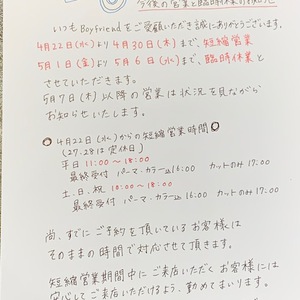 今後の営業と臨時休業のお知らせ
いつもBoyfriendをご愛顧いただき誠にありがとうございます。
4月22日(水)より4月30日(木)まで、短縮営業
5月1日(金)より5月6日(水)まで、臨時休業と
させていただきます。
5月7日(木)以降の営業は状況を見ながら
お知らせいたします。
4月22日(水)からの短縮営業時間
(27.28は定休日)
平日 11:00〜18:00
最終受付 パーマ・カラー込16:00 カットのみ17:00
土、日、祝 10:00〜18:00
最終受付 パーマ・カラー込16:00 カットのみ17:00
尚、すでにご予約を頂いているお客様は
そのままの時間で対応させて頂きます。
短縮営業期間中にご来店いただくお客様には
安心してご来店いただけるよう、勤めてまいります。